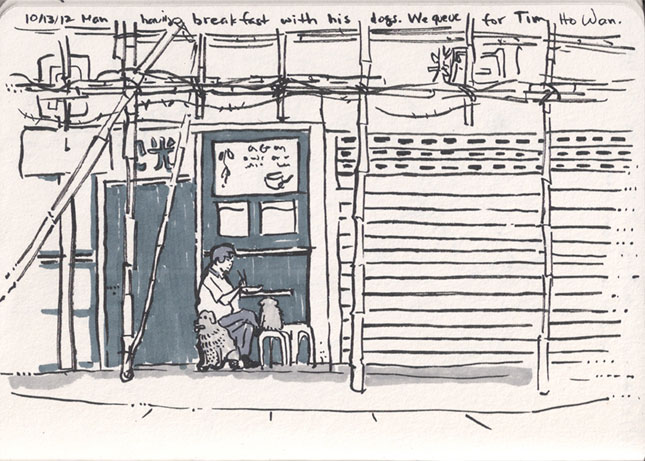 10/13/12 Man having breakfast with his dogs. We queue for Tim Ho Wan.